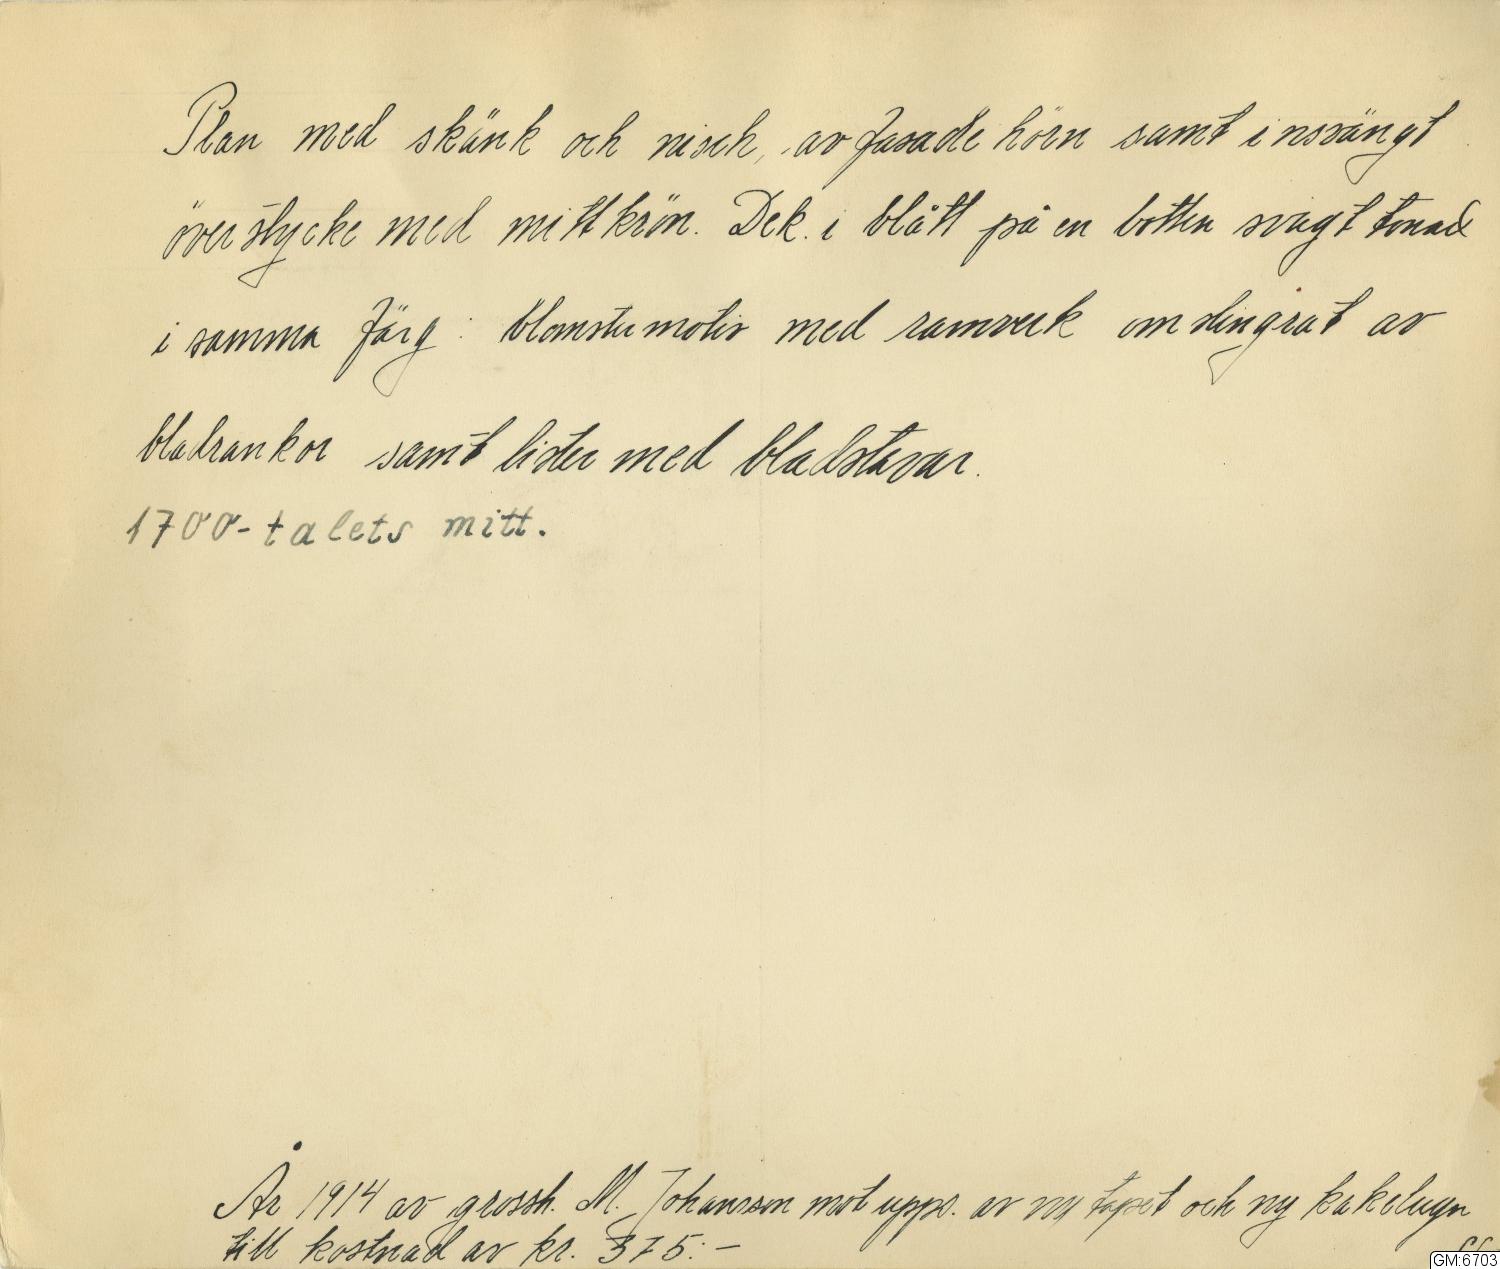 Plan med skänk och nisch, avfasade hörn samt insvängt
överstycke med mittkrön. Dek. i blått på en botten svagt tonad
i samma färg: blomstermotiv med ramverk omslingrat av
bladrankor samt lister med bladstavar.
1700-talets mitt.
År 1914 av grossh. M. Johansson mot upps. av ny tapet och ny kakelugn
till kostnad av kr. 375:-
GM:6703